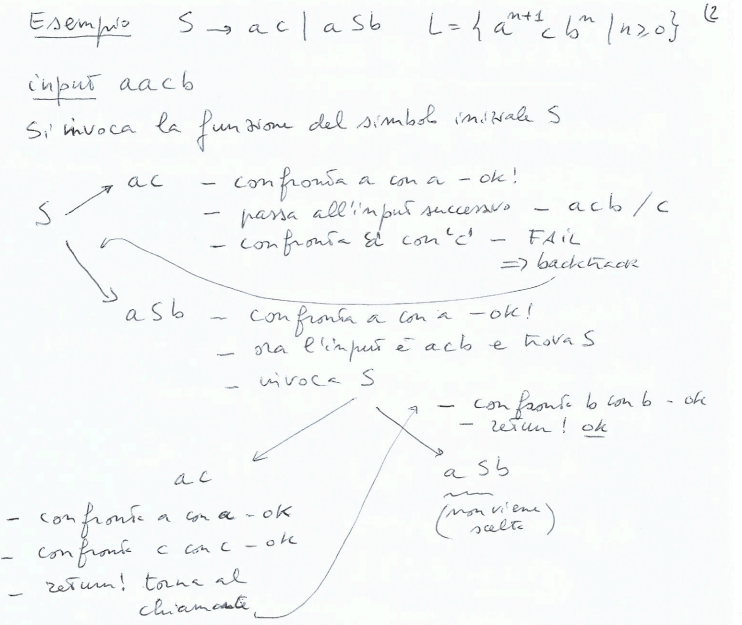 Esempio S → a c | a S b L = { a^{n+1} c b^n | n ≥ 0 } (2
input aacb
Si invoca la funzione del simbolo iniziale S
S
ac - confronta a con a - ok!
- passa all'input successivo - acb / c
- confronta con 'c' - FAIL
⇒ backtrack
a S b - confronta a con a - ok!
- ora l'input è acb e trova S
- invoca S
- confronta b con b - ok
- return! ok
ac
- confronta a con a - ok
- confronta c con c - ok
- return! torna al
chiamante
a S b
(non viene
scelta)